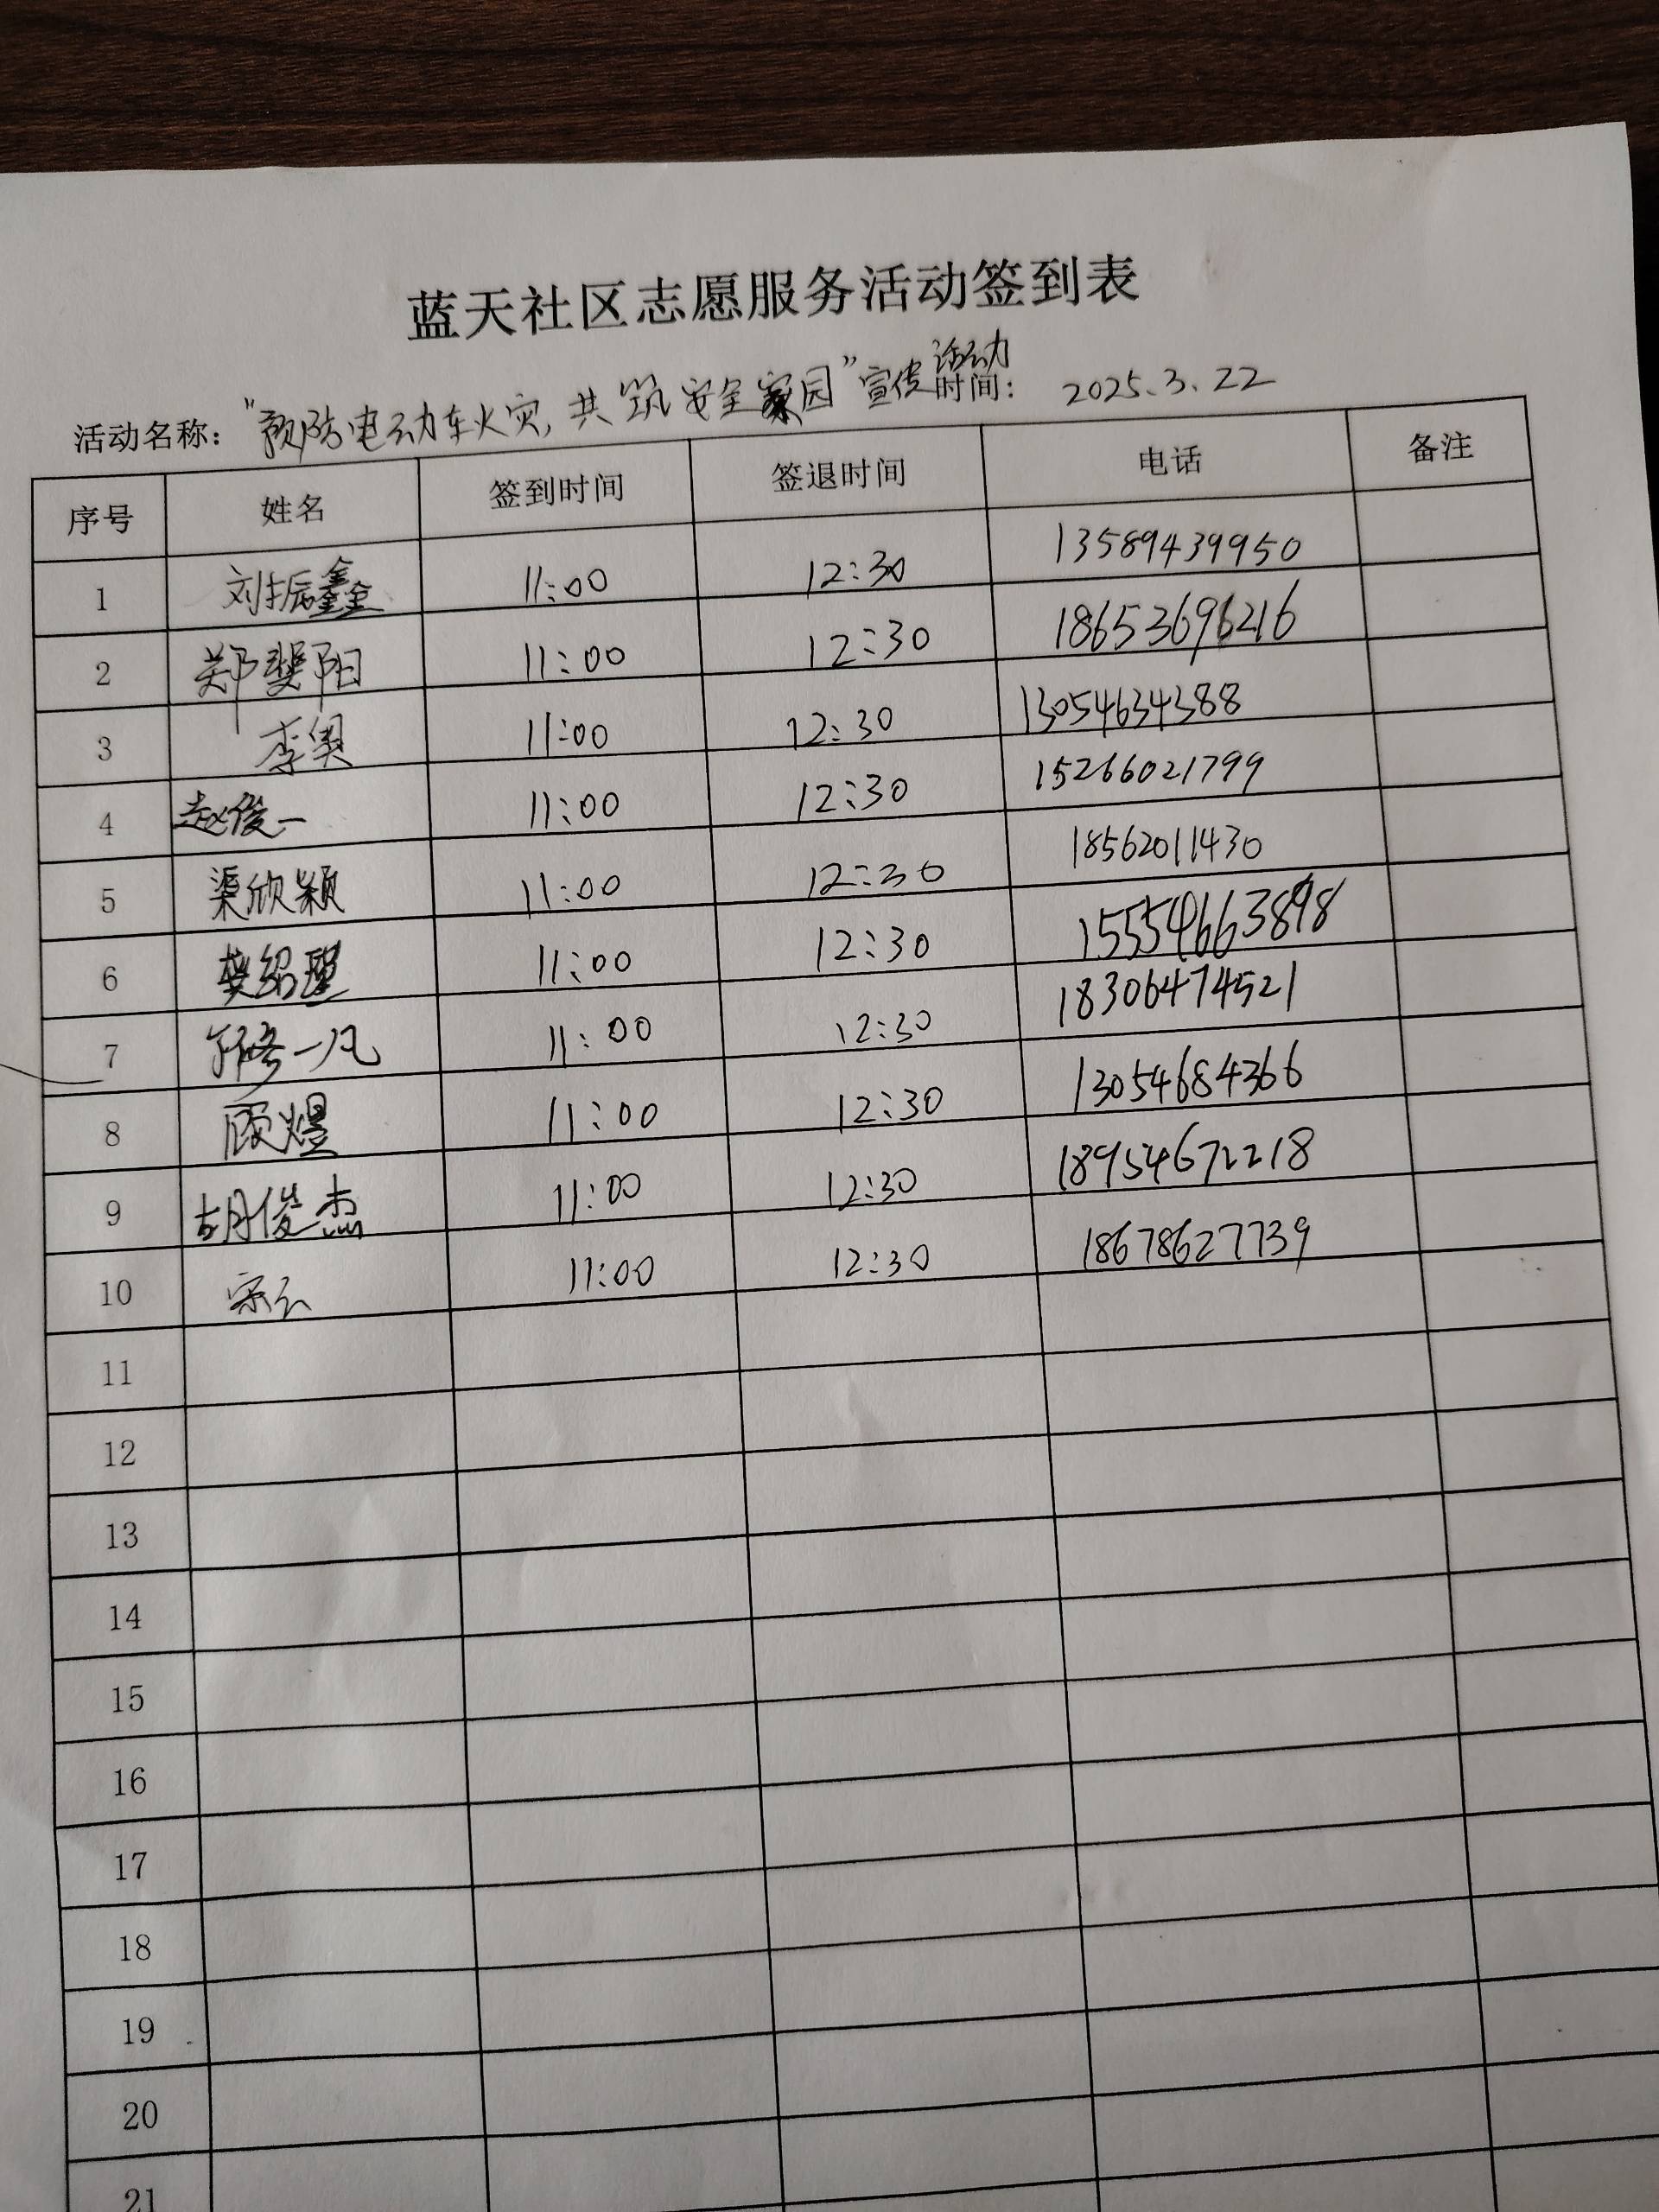 蓝天社区志愿服务活动签到表
活动名称："预防电动车火灾,共筑安全家园"宣传活动 时间： 2025.3.22
序号 姓名 签到时间 签退时间 电话 备注
1 刘振鑫 11:00 12:30 13589439950
2 郑斐阳 11:00 12:30 18653696216
3 李奥 11:00 12:30 13054634388
4 赵俊一 11:00 12:30 15266021799
5 渠欣颖 11:00 12:30 18562011430
6 11:00 12:30 15554663898
7 一凡 11:00 12:30 18306474521
8 顾煜 11:00 12:30 13054684366
9 胡俊杰 11:00 12:30 18954672218
10 宋云 11:00 12:30 18678627739
11
12
13
14
15
16
17
18
19
20
21